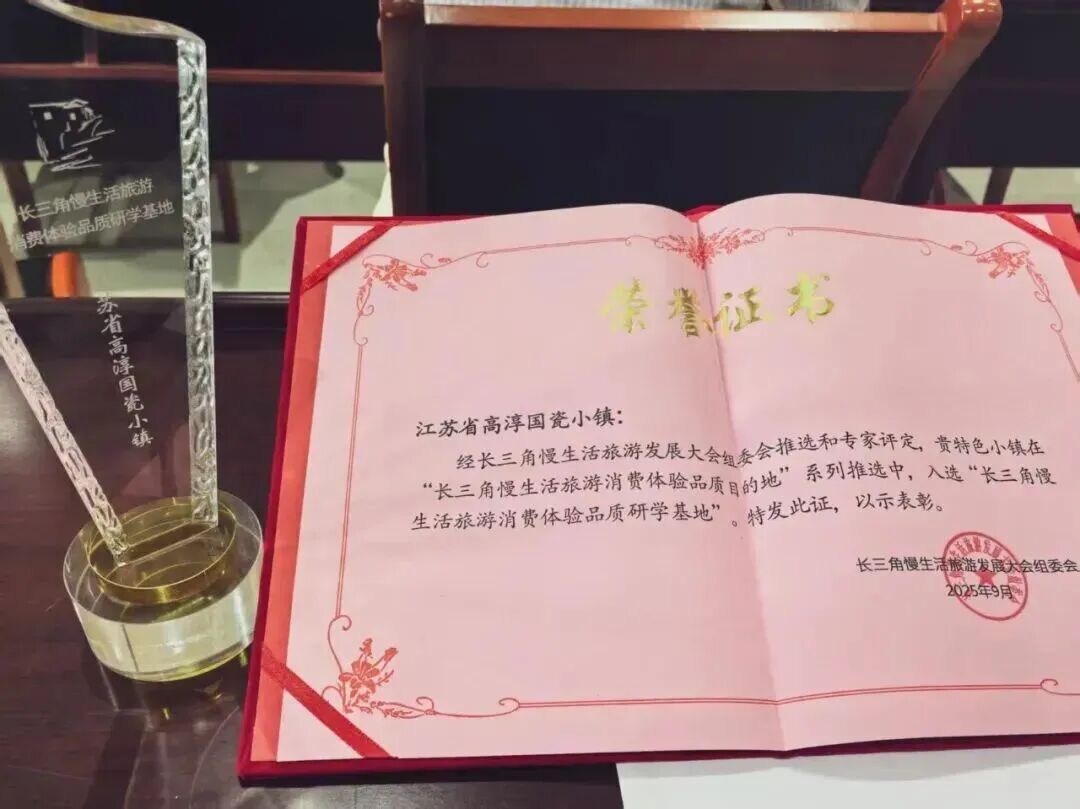 长三角慢生活旅游
消费体验品质研学基地
苏省高淳国瓷小镇
荣誉证书
江苏省高淳国瓷小镇：
经长三角慢生活旅游发展大会组委会推选和专家评定，贵特色小镇在
“长三角慢生活旅游消费体验品质目的地”系列推选中，入选“长三角慢
生活旅游消费体验品质研学基地”。特发此证，以示表彰。
长三角慢生活旅游发展大会组委会
2025年9月